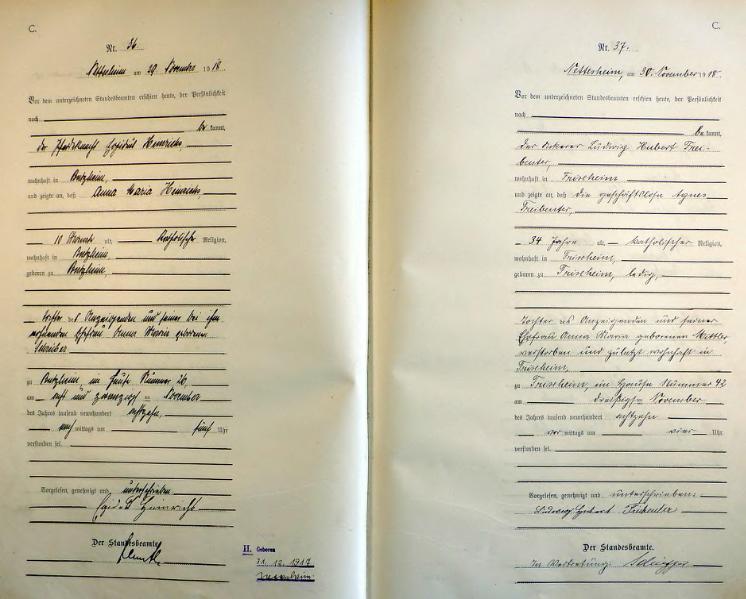 C.
Nr. 36
Nettesheim am 29 November 1918.
Vor dem unterzeichneten Standesbeamten erschien heute, der Persönlichkeit
nach
be kannt,
der Pferdeknecht Egidius Heinrichs,
wohnhaft in Butzheim,
und zeigte an, daß Anna Maria Heinrichs,
10 Monate alt, katholischer Religion,
wohnhaft in Butzheim
geboren zu Butzheim
Tochter des Anzeigenden und seiner bei ihm
Ehefrau Anna Maria geborenen
Schreiber
zu Butzheim im Hause Nummer 26,
am acht und zwanzigsten November
des Jahres tausend neunhundert achtzehn
nach mittags um fünf Uhr
verstorben sei.
Vorgelesen, genehmigt und unterschrieben
Egidius Heinrichs
Der Standesbeamte.
H. Geboren
31. 12. 1917
C.
Nr. 37.
Nettesheim, am 30. November 1918.
Vor dem unterzeichneten Standesbeamten erschien heute, der Persönlichkeit
nach
be kannt,
der Ackerer Ludwig Hubert Trei-
benter,
wohnhaft in Frixheim
und zeigte an, daß die geschäftslose Agnes
Treibenter,
34 Jahre alt, katholischer Religion,
wohnhaft in Frixheim,
geboren zu Frixheim, ledig,
Tochter des Anzeigenden und seiner
Ehefrau Anna Maria geborenen
verstorben und zuletzt wohnhaft in
Frixheim,
zu Frixheim, im Hause Nummer 42
am dreißigsten November
des Jahres tausend neunhundert achtzehn
vor mittags um vier Uhr
verstorben sei.
Vorgelesen, genehmigt und unterschrieben.
Ludwig Hubert
Der Standesbeamte.
In Vertretung: